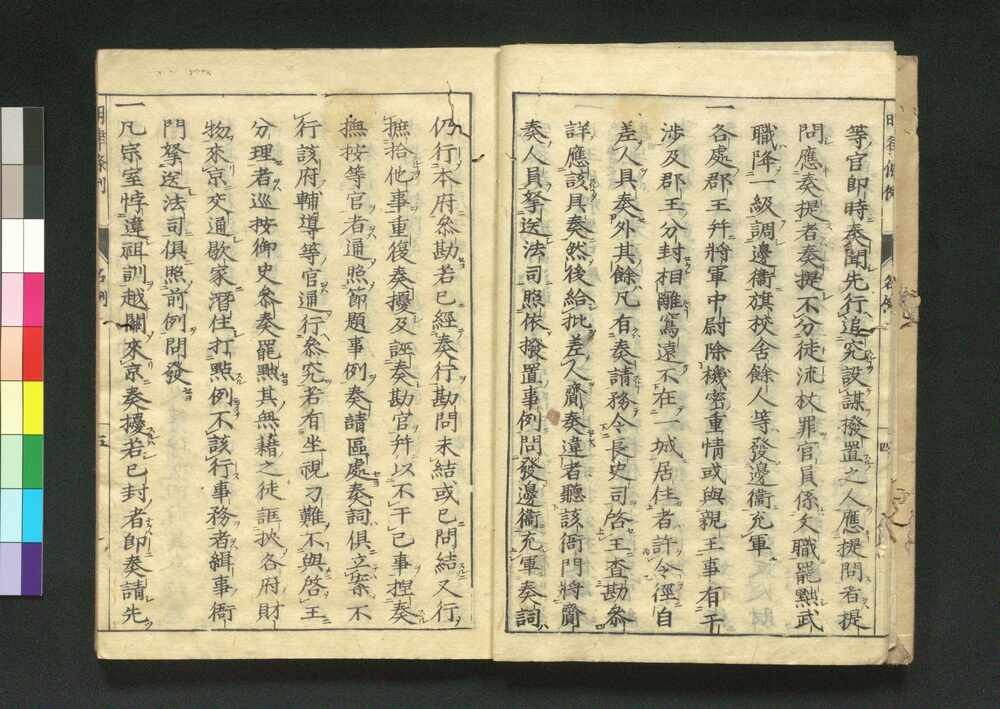 等官即時奏聞先行追究設謀撥置之人應提問者提
問應奏提者奏提不分徒流杖罪官員係文職罷黜武
職降一級調邊衞旗校舍餘人等發邊衞充軍
一各處郡王并將軍中尉除機密重情或與親王事有干
涉及郡王分封相離寫遠不在一城居住者許令徑自
差人具奏外其餘凡有奏請務令長史司啓王查勘參
詳應該具奏然後給批差人賫奏違者聽該衙門將賫
奏人員拏送法司照依撥置事例問發邊衞充軍奏詞
仍行本府參勘若已經奏行勘問未結或已問結又行
摭拾他事重復奏擾及誣奏勘官并以不干己事揑奏
撫按等官者通照節題事例奏請區處奏詞俱立案不
行該府輔導等官通行參究若有坐視刁難不與啓王
分理者巡按御史參奏罷黜其無藉之徒誆挾各府財
物來京交通歇家潛住打點例不該行事務者緝事衙
門拏送法司俱照前例問發
一凡宗室悖違祖訓越關來京奏擾若已封者即奏請先
明律條例
名例
四
明律條例
名例
五